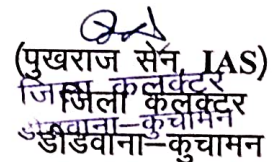 (पुखराज सेन, IAS)
जिला कलक्टर
जिला कलक्टर
डीडवाना-कुचामन
डीडवाना-कुचामन